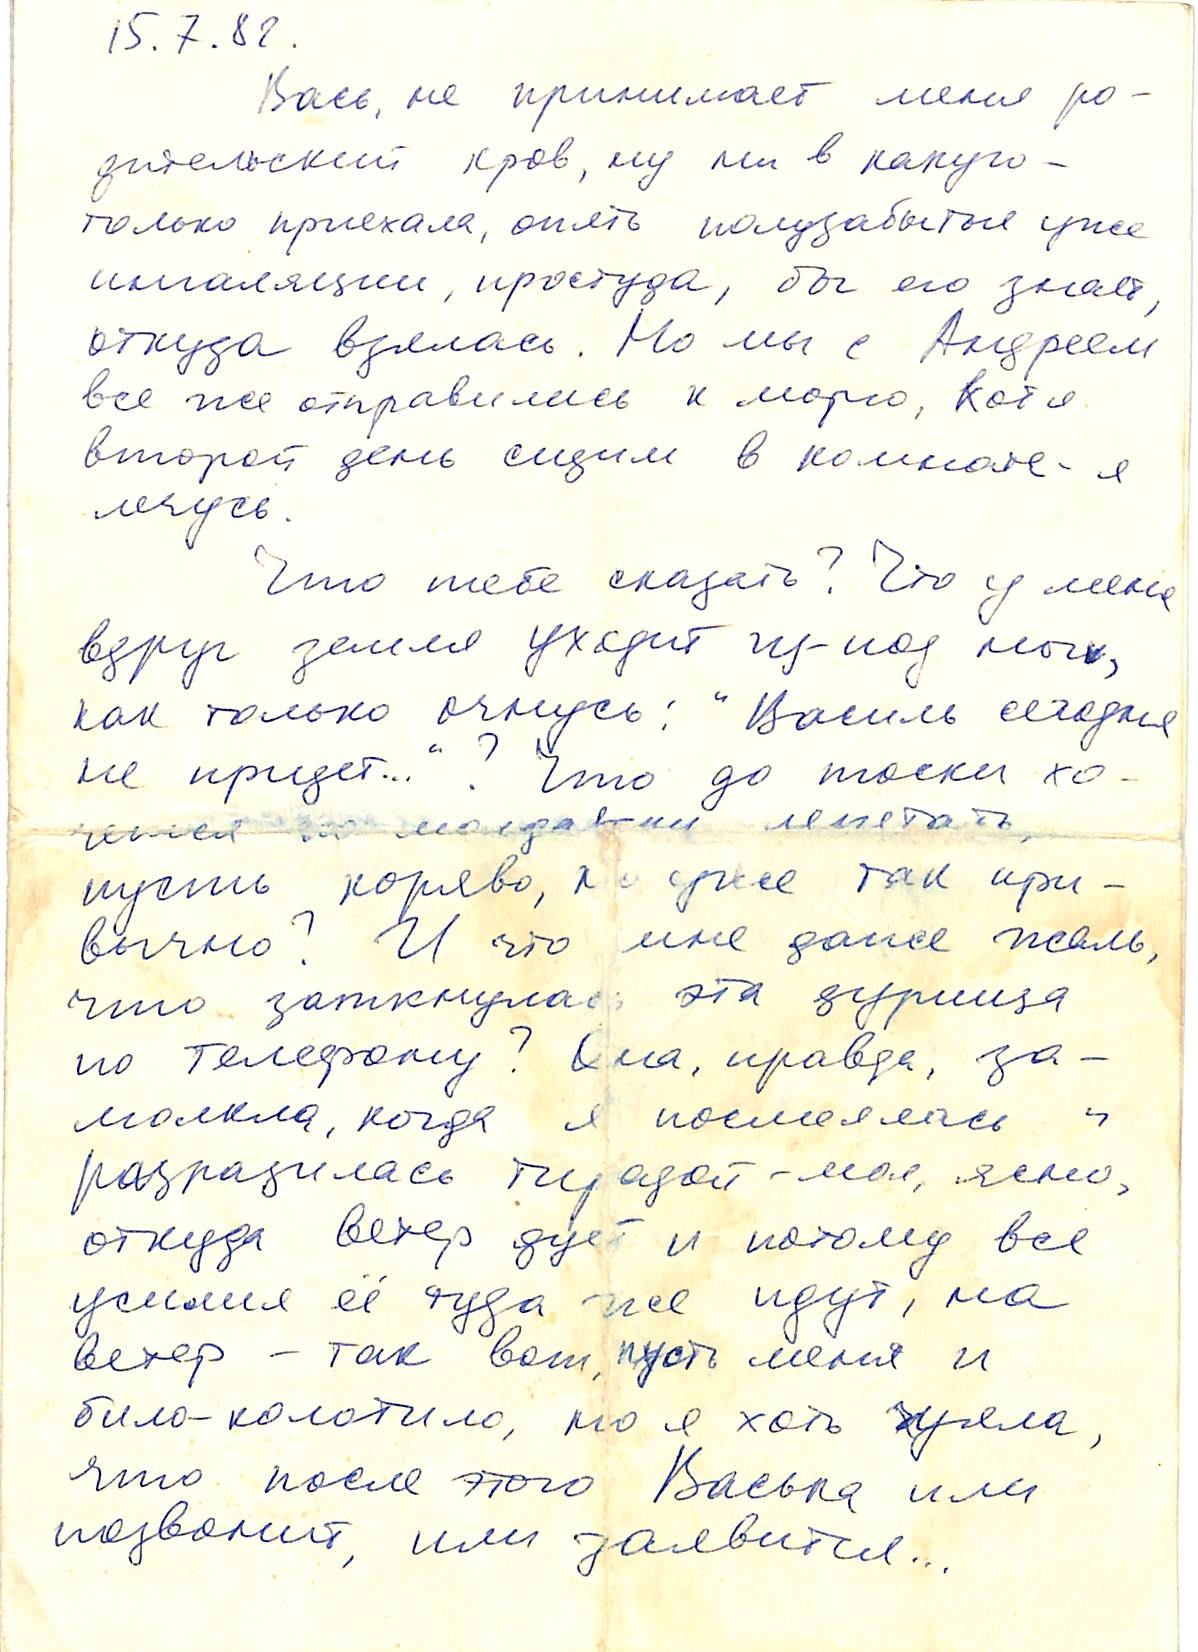 15.7.82.
Вась, не принимает меня ро-
дительский кров, ну ни в какую –
только приехала, опять полузабытые уже
ингаляции, простуда, бог его знает,
откуда взялась. Но мы с Андреем
все же отправились к морю, хотя
второй день сидим в комнате - я
лечусь.
Что тебе сказать? Что у меня
вдруг земля уходит из-под ног,
как только очнусь: "Василь сегодня
не придет..."? Что до тоски хо-
чется по молдавски лепетать,
пусть коряво, но уже так при-
вычно? И что мне даже жаль,
что заткнулась эта дурища
по телефону? Она, правда, за-
молкла, когда я посмеялась и
разразилась тирадой – мол, ясно,
откуда ветер дует и потому все
усилия её туда же идут, на
ветер – так вот, пусть меня и
било-колотило, но я хоть чуяла,
что после этого Васька или
позвонит, или заявится...